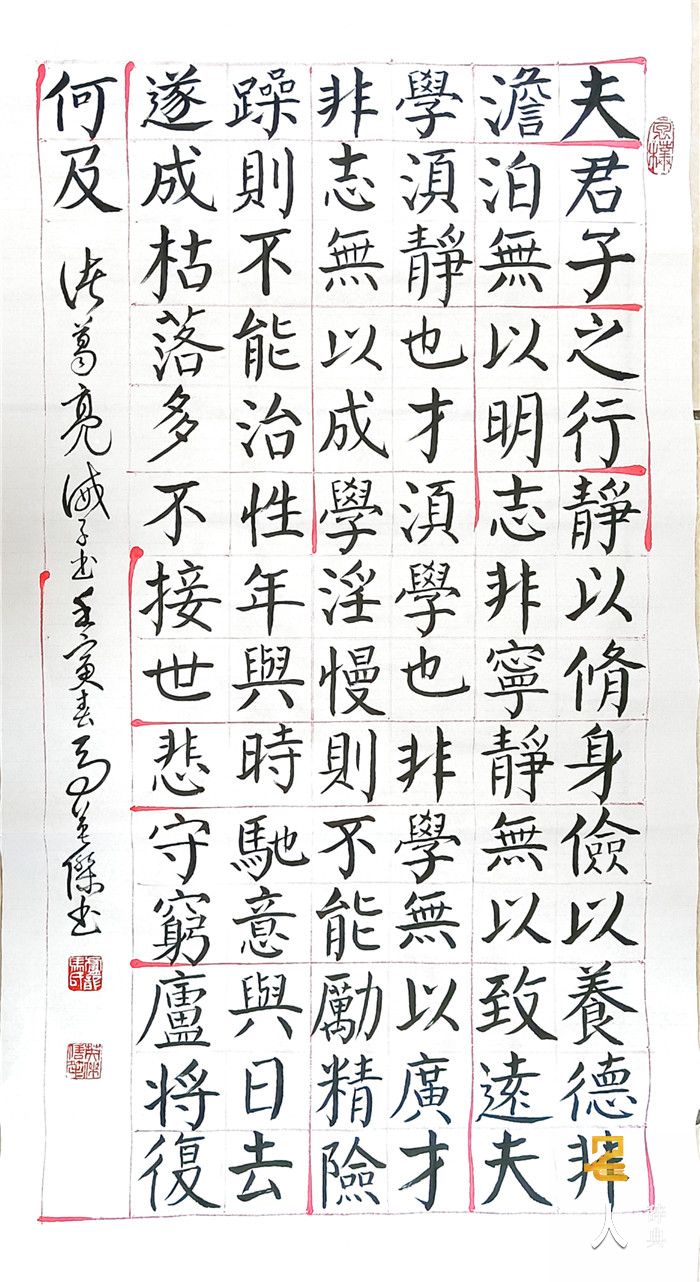 夫君子之行靜以脩身儉以養德非
澹泊無以明志非寧靜無以致遠夫
學湏靜也才湏學也非學無以廣才
非志無以成學淫慢則不能勵精險
躁則不能治性年與時馳意與日去
遂成枯落多不接世悲守窮廬將復
何及
诸葛亮诫子书壬寅春马英傑书
名人辞典